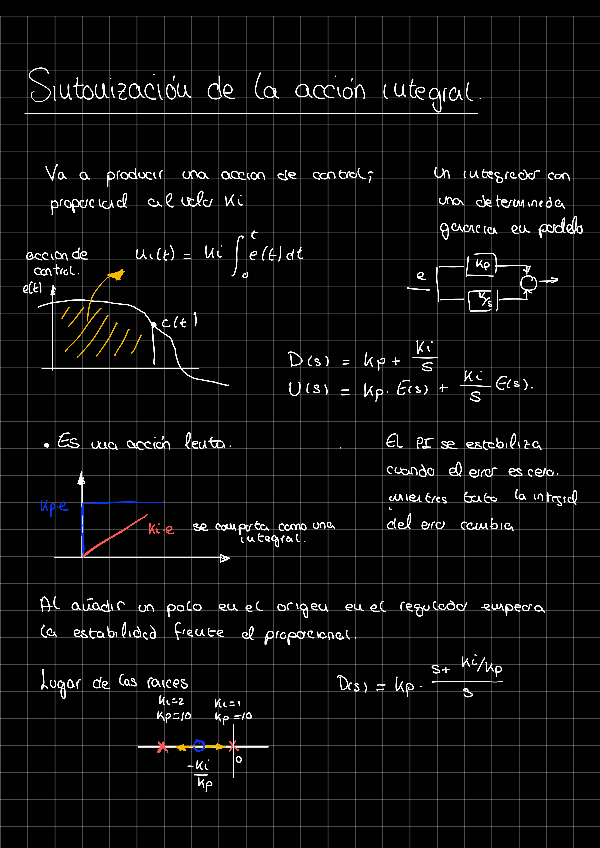 Sintonización de la acción integral.
Va a producir una accion de control;
proporcional al valor Ki
Un integrador con
una determinada
ganancia en paralelo
acción de
control.
ui(t) = Ki ∫₀ᵗ e(t) dt
e(t)
c(t)
e
Kp
K/s
D(s) = Kp + Ki/s
U(s) = Kp · E(s) + Ki/s E(s).
• Es una acción lenta.
Kp·e
Ki·e
se comporta como una
integral.
El PI se estabiliza
cuando el error es cero.
mientras tanto la integral
del error cambia
Al añadir un polo en el origen en el regulador empeora
la estabilidad frente al proporcional.
Lugar de las raices
D(s) = Kp · (s + Ki/Kp)/s
Ki=2 Ki=1
Kp=10 Kp=10
0
-Ki/Kp